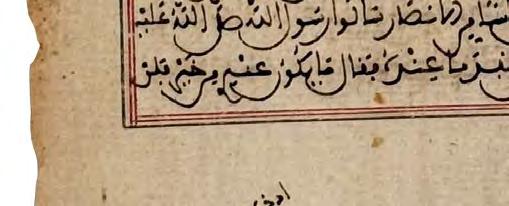 ناسا من الانصار سالوا رسول الله صلى الله عليه
نفد ما عنده فقال ما يكون عندي من خير فلن
ادخر